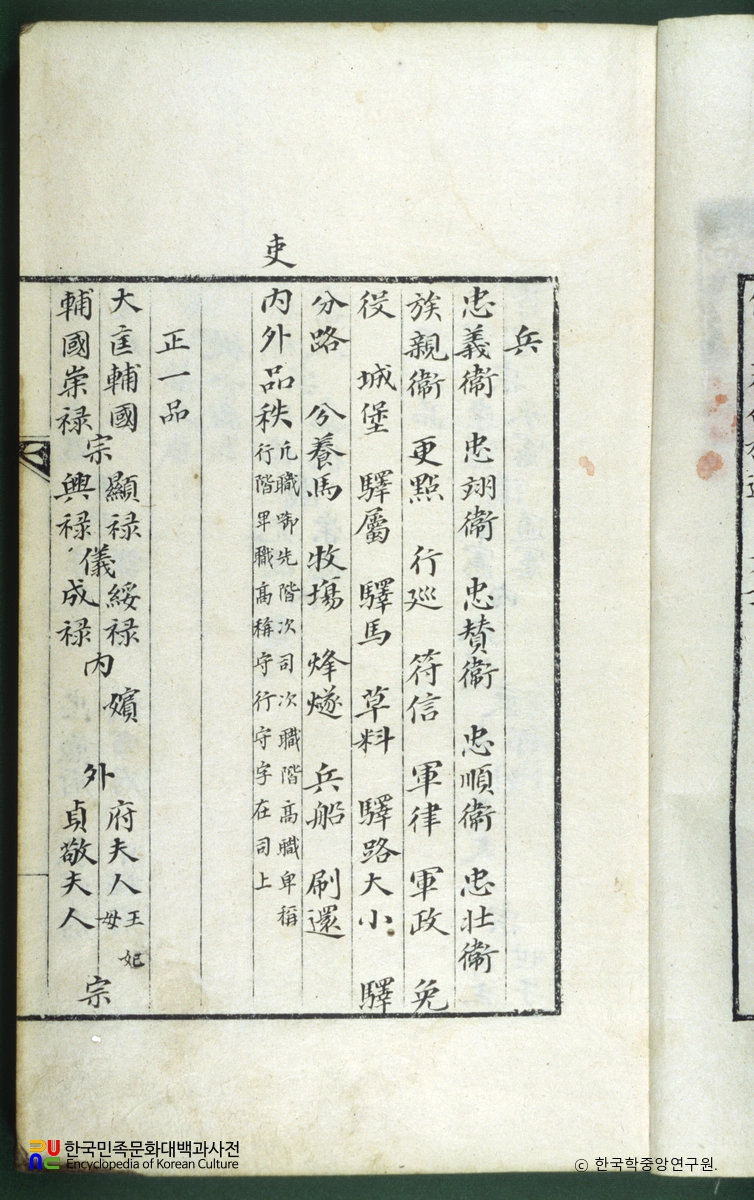 兵
忠義衛 忠翊衛 忠贊衛 忠順衛 忠壯衛
族親衛 更點 行廵 符信 軍律 軍政 免
役 城堡 驛屬 驛馬 草料 驛路大小 驛
分路 分養馬 牧場 烽燧 兵船 刷還
吏
內外品秩 凢職啣先階次司次職階高職卑稱
行階卑職高稱守行守字在司上
正一品
大匡輔國 顯祿 綏祿 嬪 府夫人 王妃母
宗 儀 內 外 宗
輔國崇祿 興祿 成祿 貞敬夫人
한국민족문화대백과사전
Encyclopedia of Korean Culture
ⓒ 한국학중앙연구원.